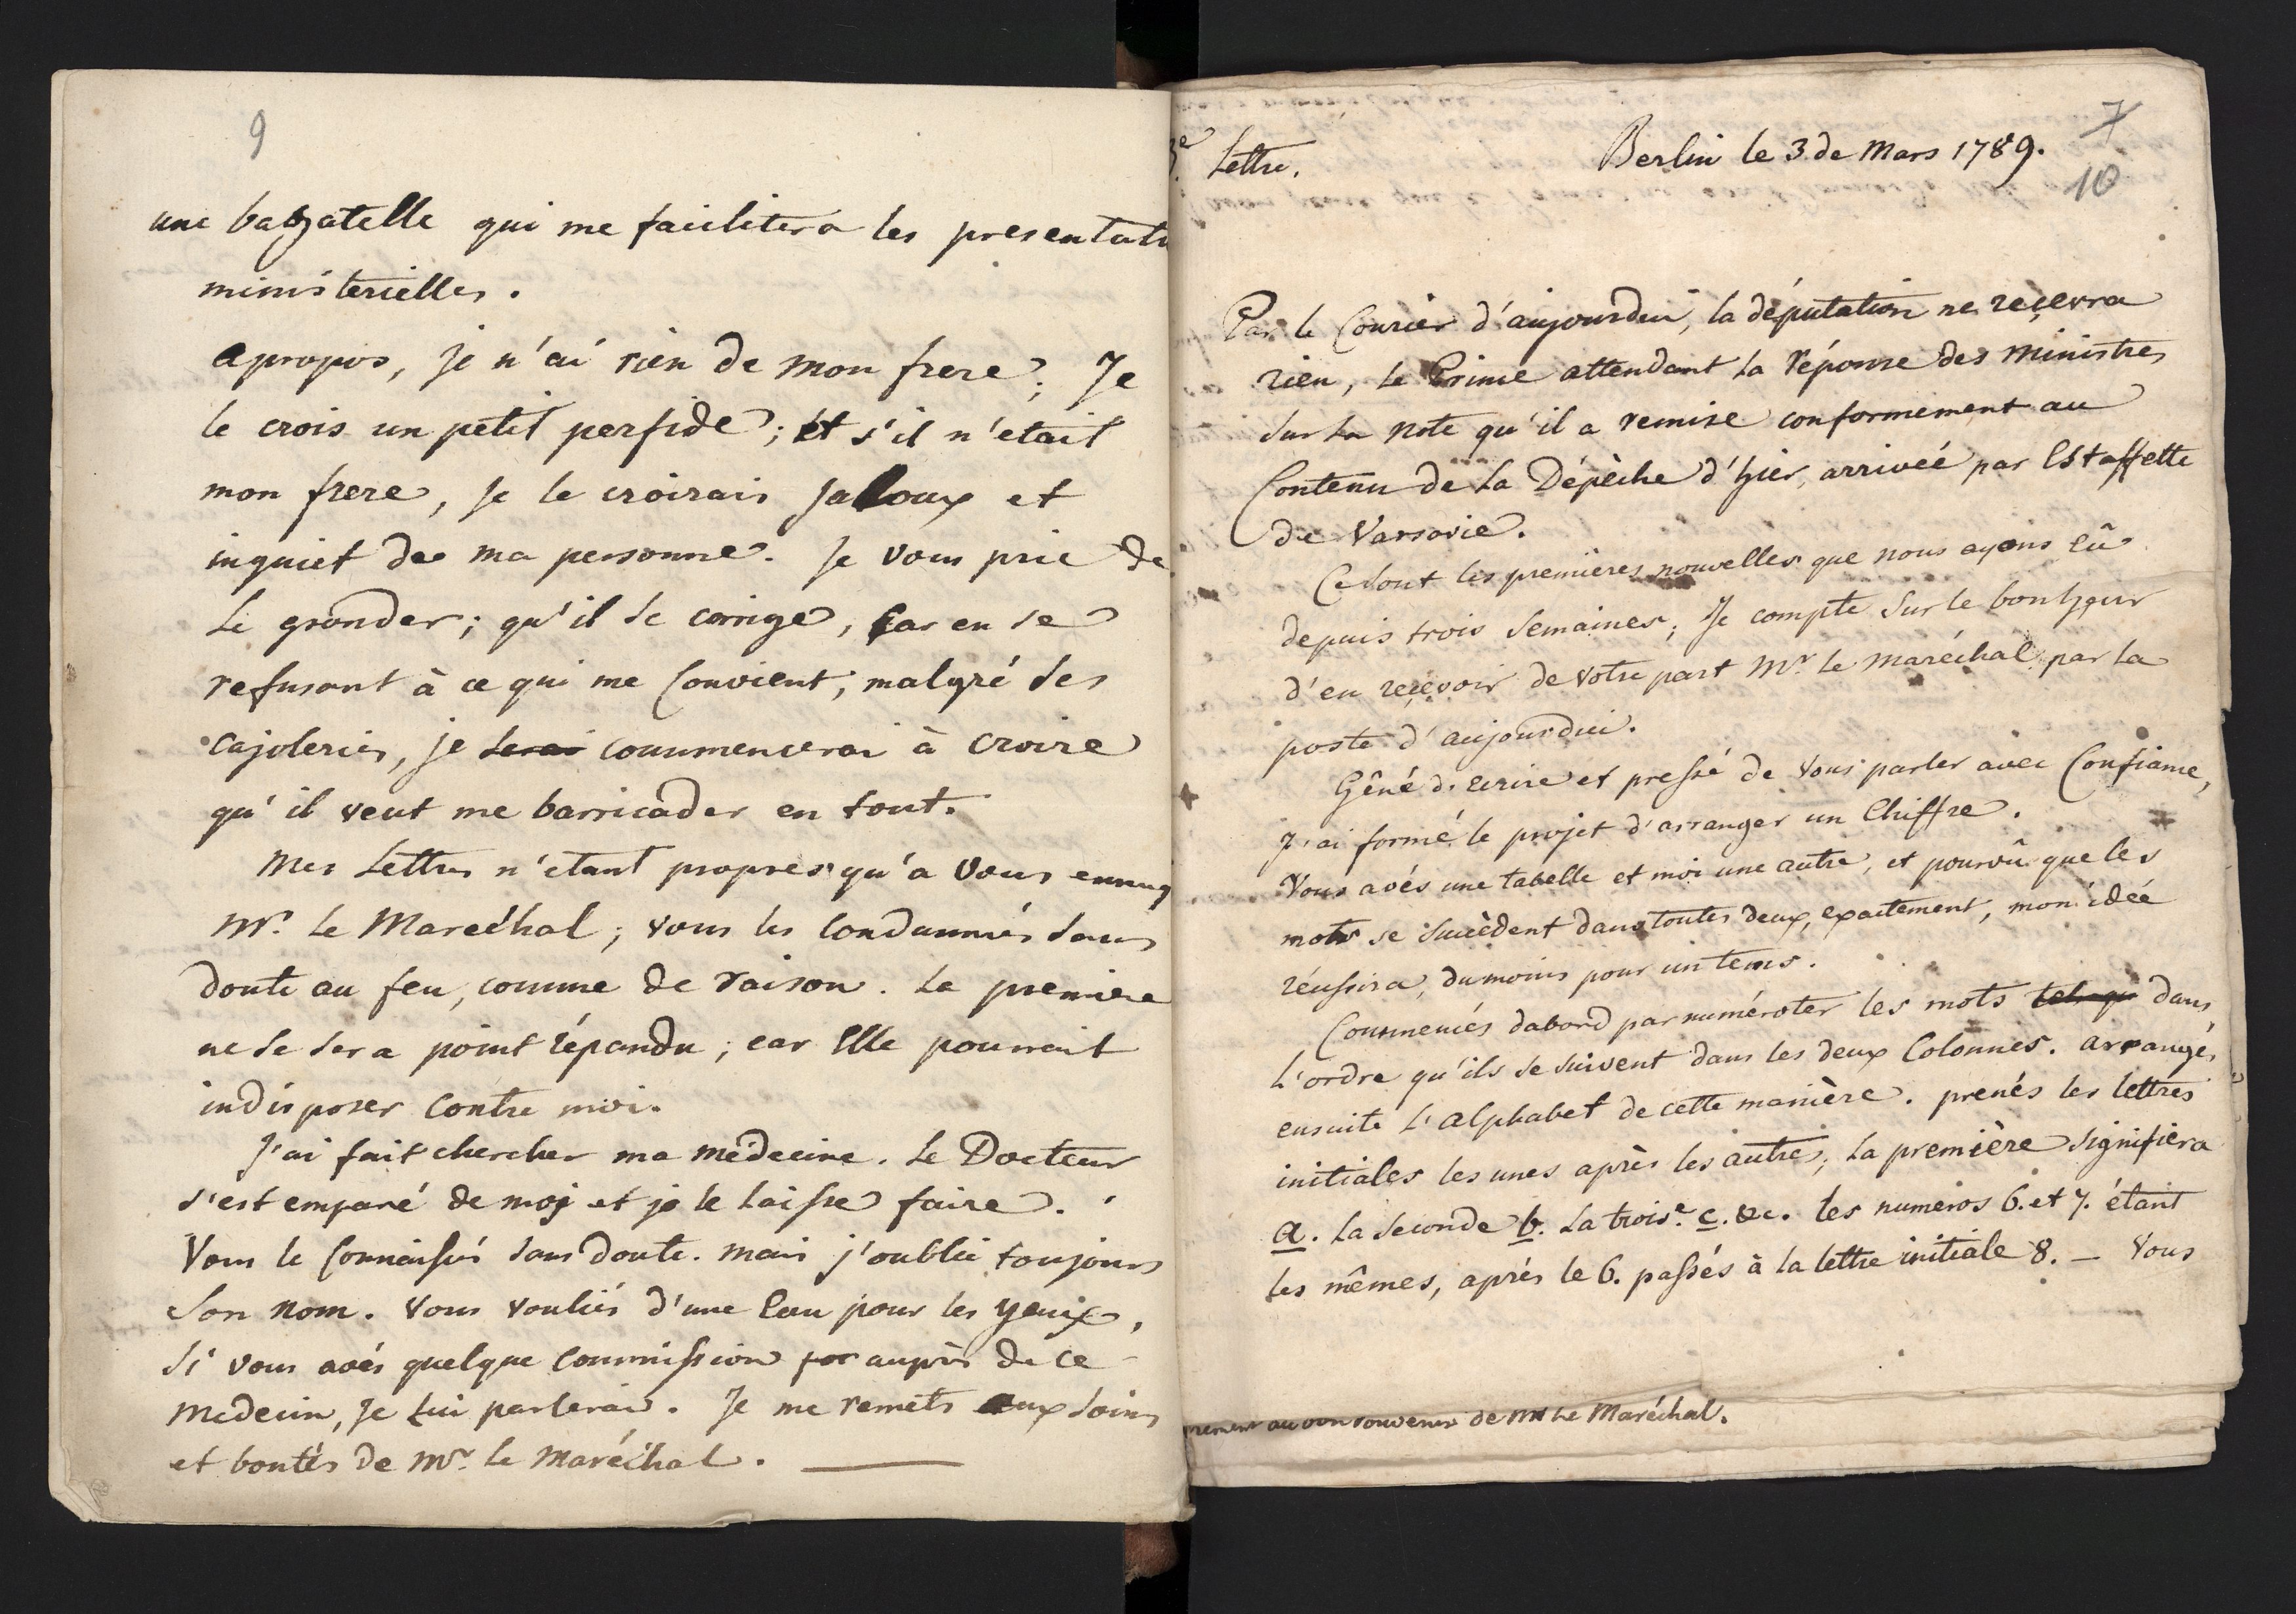 9
une bagatelle qui me facilitera les presentati
ministerielles.
apropos, je n'ai rien de mon frere; Je
le crois un petit perfide; et s'il n'était
mon frere, je le croirais jaloux et
inquiet de ma personne. Je vous prie de
le gronder; qu'il se corrige, car en se
refusant à ce qui me Convient, malgré ses
cajoleries, je serai commencerai à croire
qu'il veut me barricader en tout.
Mes Lettres n'etant propres qu'a Vous ennuy
Mr. le Maréchal; vous les Condamnés sans
doute au feu, comme de raison. La premiere
ne se sera point répandu; car Elle pourrait
indisposer Contre moi.
J'ai fait chercher ma médecine. Le Docteur
s'est emparé de moj et je le laisse faire.
Vous le Connaissés sans doute. mais j'oublie toujours
son nom. Vous vouliés d'une Eau pour les yeux,
si vous avés quelque Commission por auprès de ce
Medecin, Je lui parlerai. Je me remets aux soins
et bontés de Mr. le Maréchal.
3e Lettre. Berlin le 3 de Mars 1789.
7
10
Par le Courier d'aujourdui, la députation ne reçevra
rien, le Prince attendant la réponse des Ministres
sur la Note qu'il a remise conformement au
Contenu de la Dépêche d'hier, arrivée par Estaffette
de Varsovie.
Ce sont les premières nouvelles que nous ayons eû
depuis trois semaines; Je compte sur le bonheur
d'en reçevoir de Votre part Mr. le Maréchal, par la
poste d'aujourdui.
Gêné d'ecrire et pressé de Vous parler avec Confiance,
J'ai formé le projet d'arranger un Chiffre.
Vous avés une tabelle et moi une autre, et pourvû que les
mots se succèdent dans toutes deux, exactement, mon idée
réussira, du moins pour un tems.
Commencés dabord par numéroter les mots tels qu dans
l'ordre qu'ils se suivent dans les deux Colonnes. arrangés
ensuite l'alphabet de cette manière. prenés les lettres
initiales les unes après les autres, la première signifiera
a. la seconde b. la trois.e c. &c. les numeros 6. et 7. étant
les mêmes, après le 6. passés à la lettre initiale 8. — Vous
au bon souvenir de Mr le Maréchal.